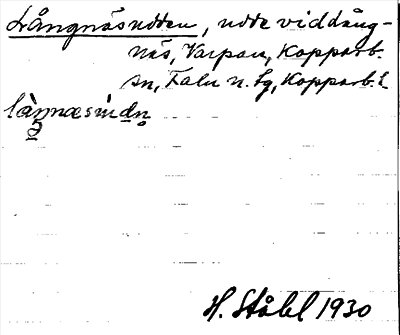 Långnäsudden, udde vid Lång-
näs, Varpan, Kopparb.
sn, Falu n. tg, Kopparb. l.
H. Ståhl 1930